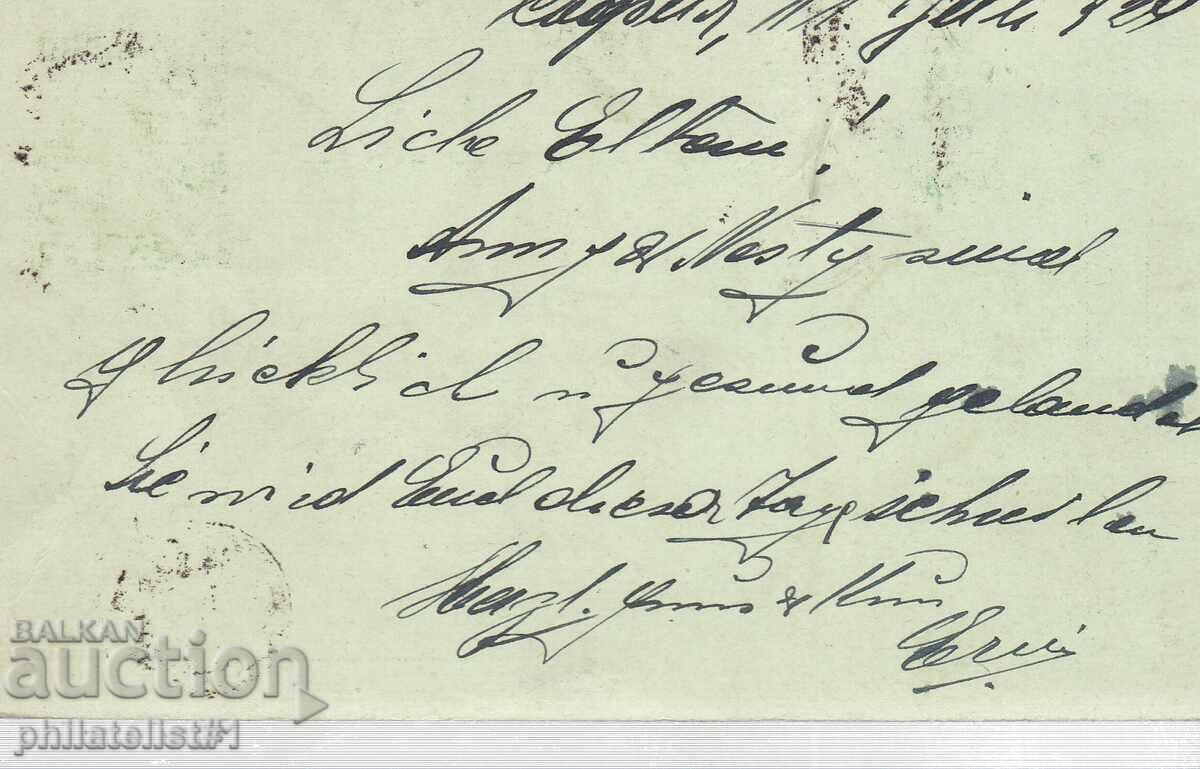 Juli
Liebe Eltern!
Anny & Nesty sind
glücklich u. gesund gelandet
Sie wird Euch dieser Tage schreiben
Herzl. Gruss & Kuss
Erni
BALKAN
auction
philatelist#1